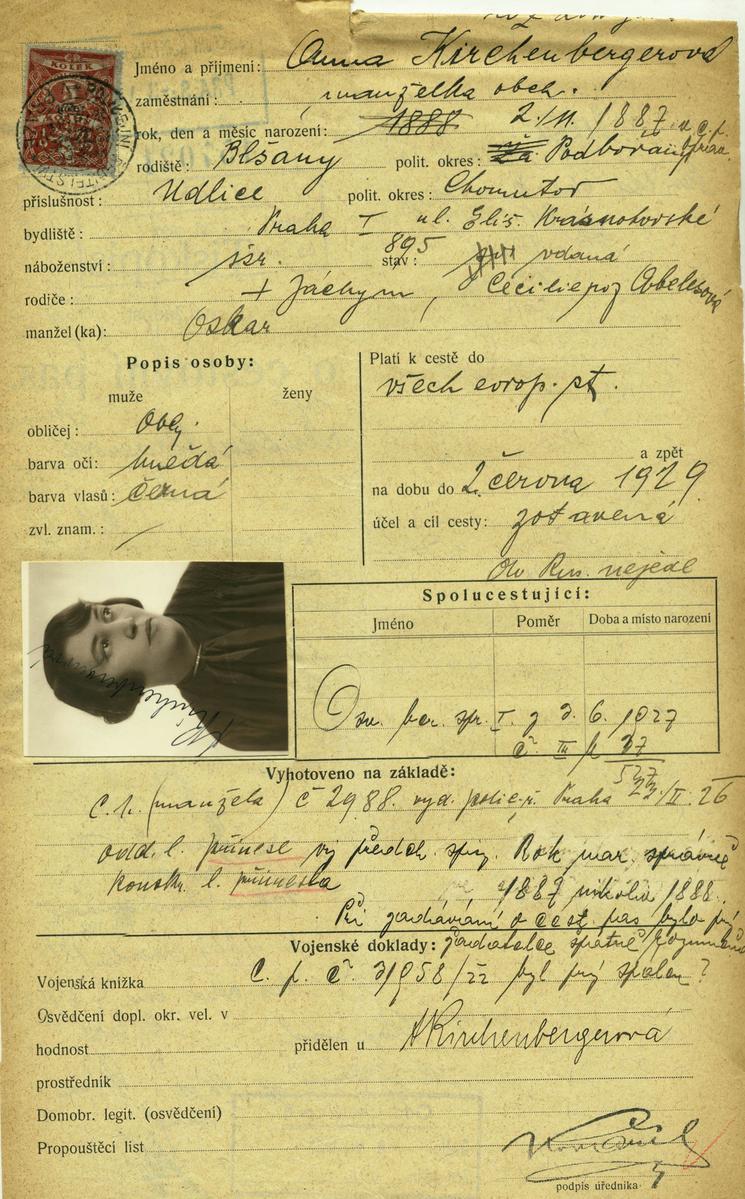 KOLEK
Jméno a příjmení: Anna Kirchenbergerová
zaměstnání: manželka obch.
rok, den a měsíc narození: 1888 2./11. 1887
rodiště: Blšany polit. okres: Podbořany
příslušnost: Údlice polit. okres: Chomutov
bydliště: Praha I ul. Eliš. Krásnohorské
895
náboženství: izr. stav: vdaná
rodiče: + Jáchym, Cecilie poz Abelesová
manžel (ka): Oskar
Popis osoby:
muže ženy
obličej: obly
barva očí: hnědá
barva vlasů: černá
zvl. znam.: /
Platí k cestě do
všech evrop. st.
a zpět
na dobu do 2. června 1929
účel a cíl cesty: zotavená
do Rus. nejede
Spolucestující:
Jméno Poměr Doba a místo narození
Osv. ber. spr. I. z 3. 6. 1927
č. III
Vyhotoveno na základě:
c. p. (manžela) č 2988. vyd. polic. ř. Praha 23/II. 26
odd. l. přinese předch. Rok nar. správně
konskr. l. přinesla 1887 nikoliv 1888.
Při zadávání o cest. pas bylo prý
žadatelce špatně rozuměno
Vojenské doklady:
Vojenská knížka C. p. č 31958/22 byl prý spálen?
Osvědčení dopl. okr. vel. v
hodnost přidělen u AKirchenbergerová
prostředník
Domobr. legit. (osvědčení)
Propouštěcí list
podpis úředníka